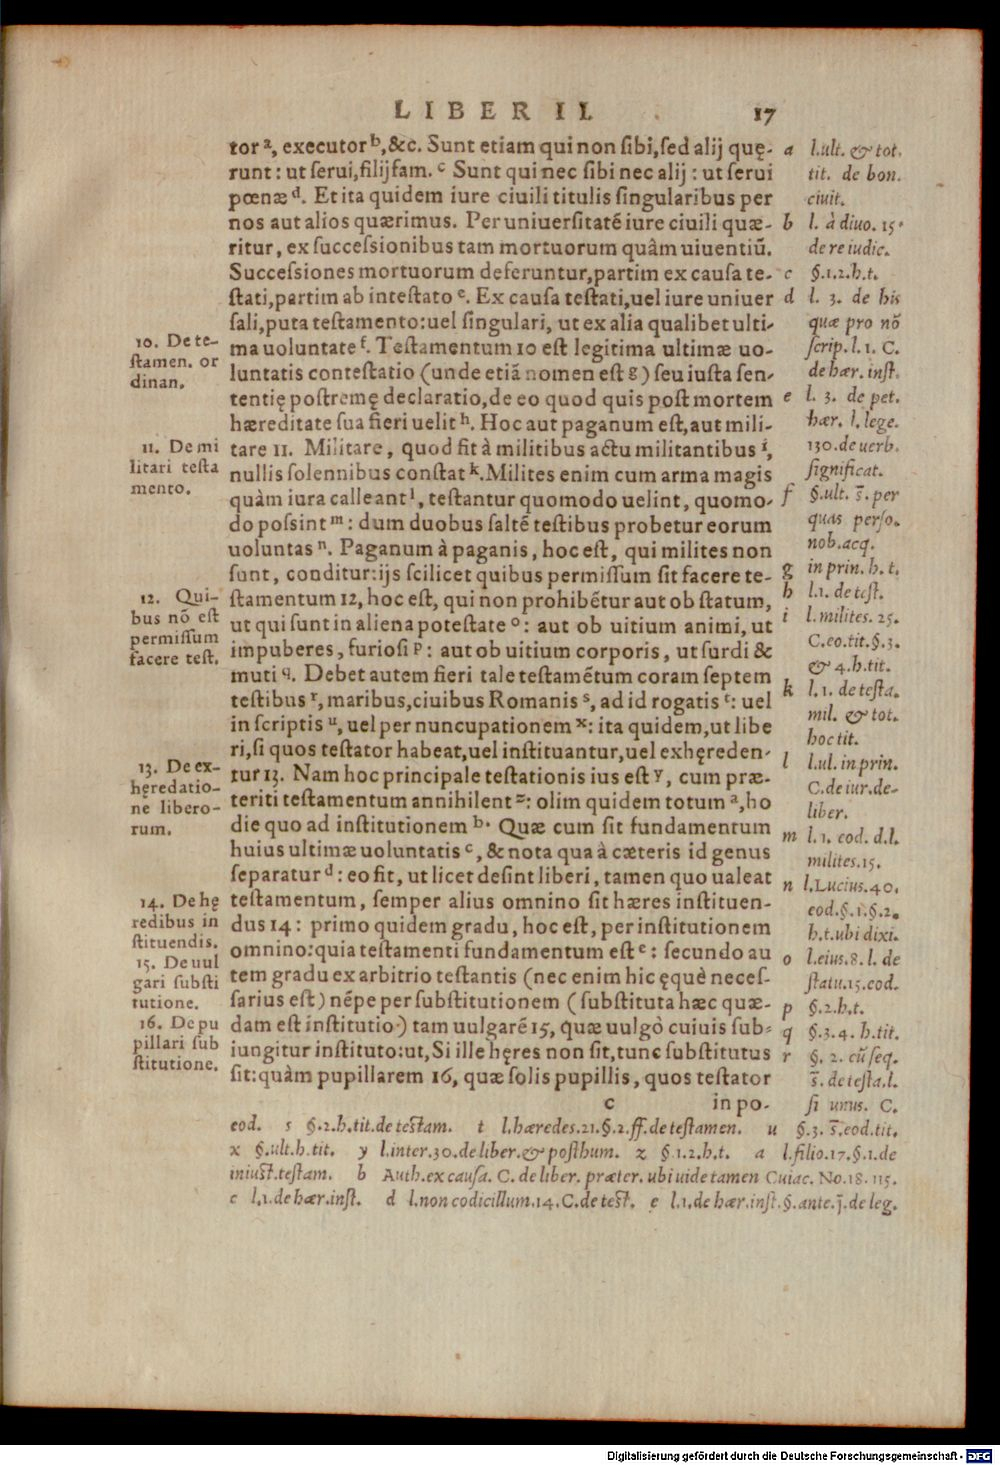 LIBER II.
17
tor ᵃ, executor ᵇ, &c. Sunt etiam qui non sibi, sed alij quę-
runt: ut serui, filijfam. ᶜ Sunt qui nec sibi nec alij: ut serui
pœnæ ᵈ. Et ita quidem iure ciuili titulis singularibus per
nos aut alios quærimus. Per uniuersitatẽ iure ciuili quæ-
ritur, ex successionibus tam mortuorum quàm uiuentiũ.
Successiones mortuorum deferuntur, partim ex causa te-
stati, partim ab intestato ᵉ. Ex causa testati, uel iure uniuer
sali, puta testamento: uel singulari, ut ex alia qualibet ulti-
ma uoluntate ᶠ. Testamentum 10 est legitima ultimæ uo-
luntatis contestatio (unde etiã nomen est ᵍ) seu iusta sen-
tentię postremę declaratio, de eo quod quis post mortem
hæreditate sua fieri uelit ʰ. Hoc aut paganum est, aut mili-
tare 11. Militare, quod fit à militibus actu militantibus ⁱ,
nullis solennibus constat ᵏ. Milites enim cum arma magis
quàm iura calleant ˡ, testantur quomodo uelint, quomo-
do possint ᵐ: dum duobus saltẽ testibus probetur eorum
uoluntas ⁿ. Paganum à paganis, hoc est, qui milites non
sunt, conditur: ijs scilicet quibus permissum sit facere te-
stamentum 12, hoc est, qui non prohibẽtur aut ob statum,
ut qui sunt in aliena potestate ᵒ: aut ob uitium animi, ut
impuberes, furiosi ᵖ: aut ob uitium corporis, ut surdi &
muti q. Debet autem fieri tale testamẽtum coram septem
testibus ʳ, maribus, ciuibus Romanis ˢ, ad id rogatis ᵗ: uel
in scriptis ᵘ, uel per nuncupationem ˣ: ita quidem, ut libe
ri, si quos testator habeat, uel instituantur, uel exhęreden-
tur 13. Nam hoc principale testationis ius est ʸ, cum præ-
teriti testamentum annihilent ᶻ: olim quidem totum ᵃ, ho
die quo ad institutionem ᵇ. Quæ cum sit fundamentum
huius ultimæ uoluntatis ᶜ, & nota qua à cæteris id genus
separatur ᵈ: eo fit, ut licet desint liberi, tamen quo ualeat
testamentum, semper alius omnino sit hæres instituen-
dus 14: primo quidem gradu, hoc est, per institutionem
omnino: quia testamenti fundamentum est ᵉ: secundo au
tem gradu ex arbitrio testantis (nec enim hic ęquè neces-
sarius est) nẽpe per substitutionem (substituta hæc quæ-
dam est institutio) tam uulgarẽ 15, quæ uulgò cuiuis sub-
iungitur instituto: ut, Si ille hęres non sit, tunc substitutus
sit: quàm pupillarem 16, quæ solis pupillis, quos testator
c in po-
10. De te-
stamen. or
dinan.
11. De mi
litari testa
mento.
12. Qui-
bus nõ est
permissum
facere test.
13. De ex-
hęredatio-
ne libero-
rum.
14. De hę
redibus in
stituendis.
15. De uul
gari substi
tutione.
16. De pu
pillari sub
stitutione.
a l.ult. & tot.
tit. de bon.
ciuit.
b l. à diuo. 15.
de re iudic.
c §.1.2.h.t.
d l. 3. de his
quæ pro nõ
scrip. l. 1. C.
de hær. inst.
e l. 3. de pet.
hær. l. lege.
130. de uerb.
significat.
f §.ult. s̄. per
quas perso.
nob. acq.
g in prin. h. t.
h l.1. de test.
i l. milites. 25.
C. eo. tit. §.3.
& 4.h.tit.
k l.1. de testa.
mil. & tot.
hoc tit.
l l.ul. in prin.
C. de iur. de-
liber.
m l.1. eod. d.l.
milites.15.
n l.Lucius.40.
eod.§.1.§.2.
h.t.ubi dixi.
o l.eius.8.l. de
statu.15.cod.
p §.2.h.t.
q §.3.4. h.tit.
r §. 2. cũ seq.
s̄. de testa.l.
si unus. C.
eod. s §.2.h.tit. de testam. t l.hæredes.21.§.2.ff. de testamen. u §.3. s̄.eod.tit.
x §.ult.h.tit. y l.inter.30.de liber.& posthum. z §.1.2.h.t. a l.filio.17.§.1.de
iniust.testam. b Auth.ex causa. C. de liber. præter. ubi uide tamen Cuiac. No.18.115.
c l.1.de hær.inst. d l.non codicillum.14.C.de test. e l.1.de hær.inst.§.ante.j̄.de leg.
Digitalisierung gefördert durch die Deutsche Forschungsgemeinschaft - DFG